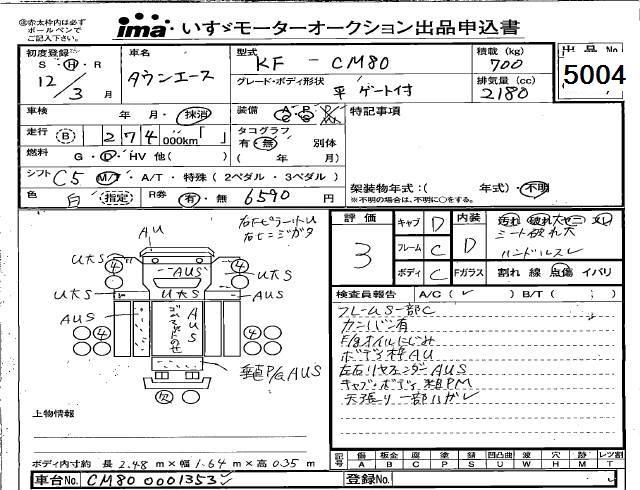 ㊟赤太枠内は必ず
ボールペンで
ご記入下さい。
ima いすゞモーターオークション出品申込書
初度登録 車名 型式 積載 (kg) 出品No
S・Ⓗ・R タウンエース KF - CM80 700 5004
12/3月 グレード・ボディ形状 平 ゲート付 排気量 (cc) 2180
車検 年・月・抹消 装備 A P 特記事項
走行 Ⓑ 2 7 4 000km「 」 タコグラフ
有・無 別体
燃料 G・D・HV 他( ) ( 年 月)
シフト C5 M/T・A/T・特殊 (2ペダル・3ペダル) 架装物年式:( 年式)・不明
※不明の場合は、不明に○をする。
色 白 指定 R券 有・無 6590 円
評価 3
キャブ D 内装 D 汚れ 破れ大 ヤニ スレ
シート破れ大
ハンドルスレ
フレーム C
ボディ C Fガラス 割れ 線 点傷 イバリ
検査員報告 A/C(✓) B/T( ; )
フレームS一部C
カンバン有
F/Gオイルにじみ
ボデー枠AU
左右リヤフェンダーAUS
キャブ・ボデー粗PM
天張り一部ハガレ
AU
右ヒンジガタ
U大S 4 AUS 4 U大S
U大S U大S AUS
AUS AUS
4 4
垂直P/G AUS
欠
上物情報
ボディ内寸約 長 2.48 m×幅 1.64 m×高 0.35 m
記号 傷 板金 腐 塗 錆 凹凸曲 波 穴 跡 レツ割
A B C P S U W H M T
車台No. CM80 0001353
登録No.